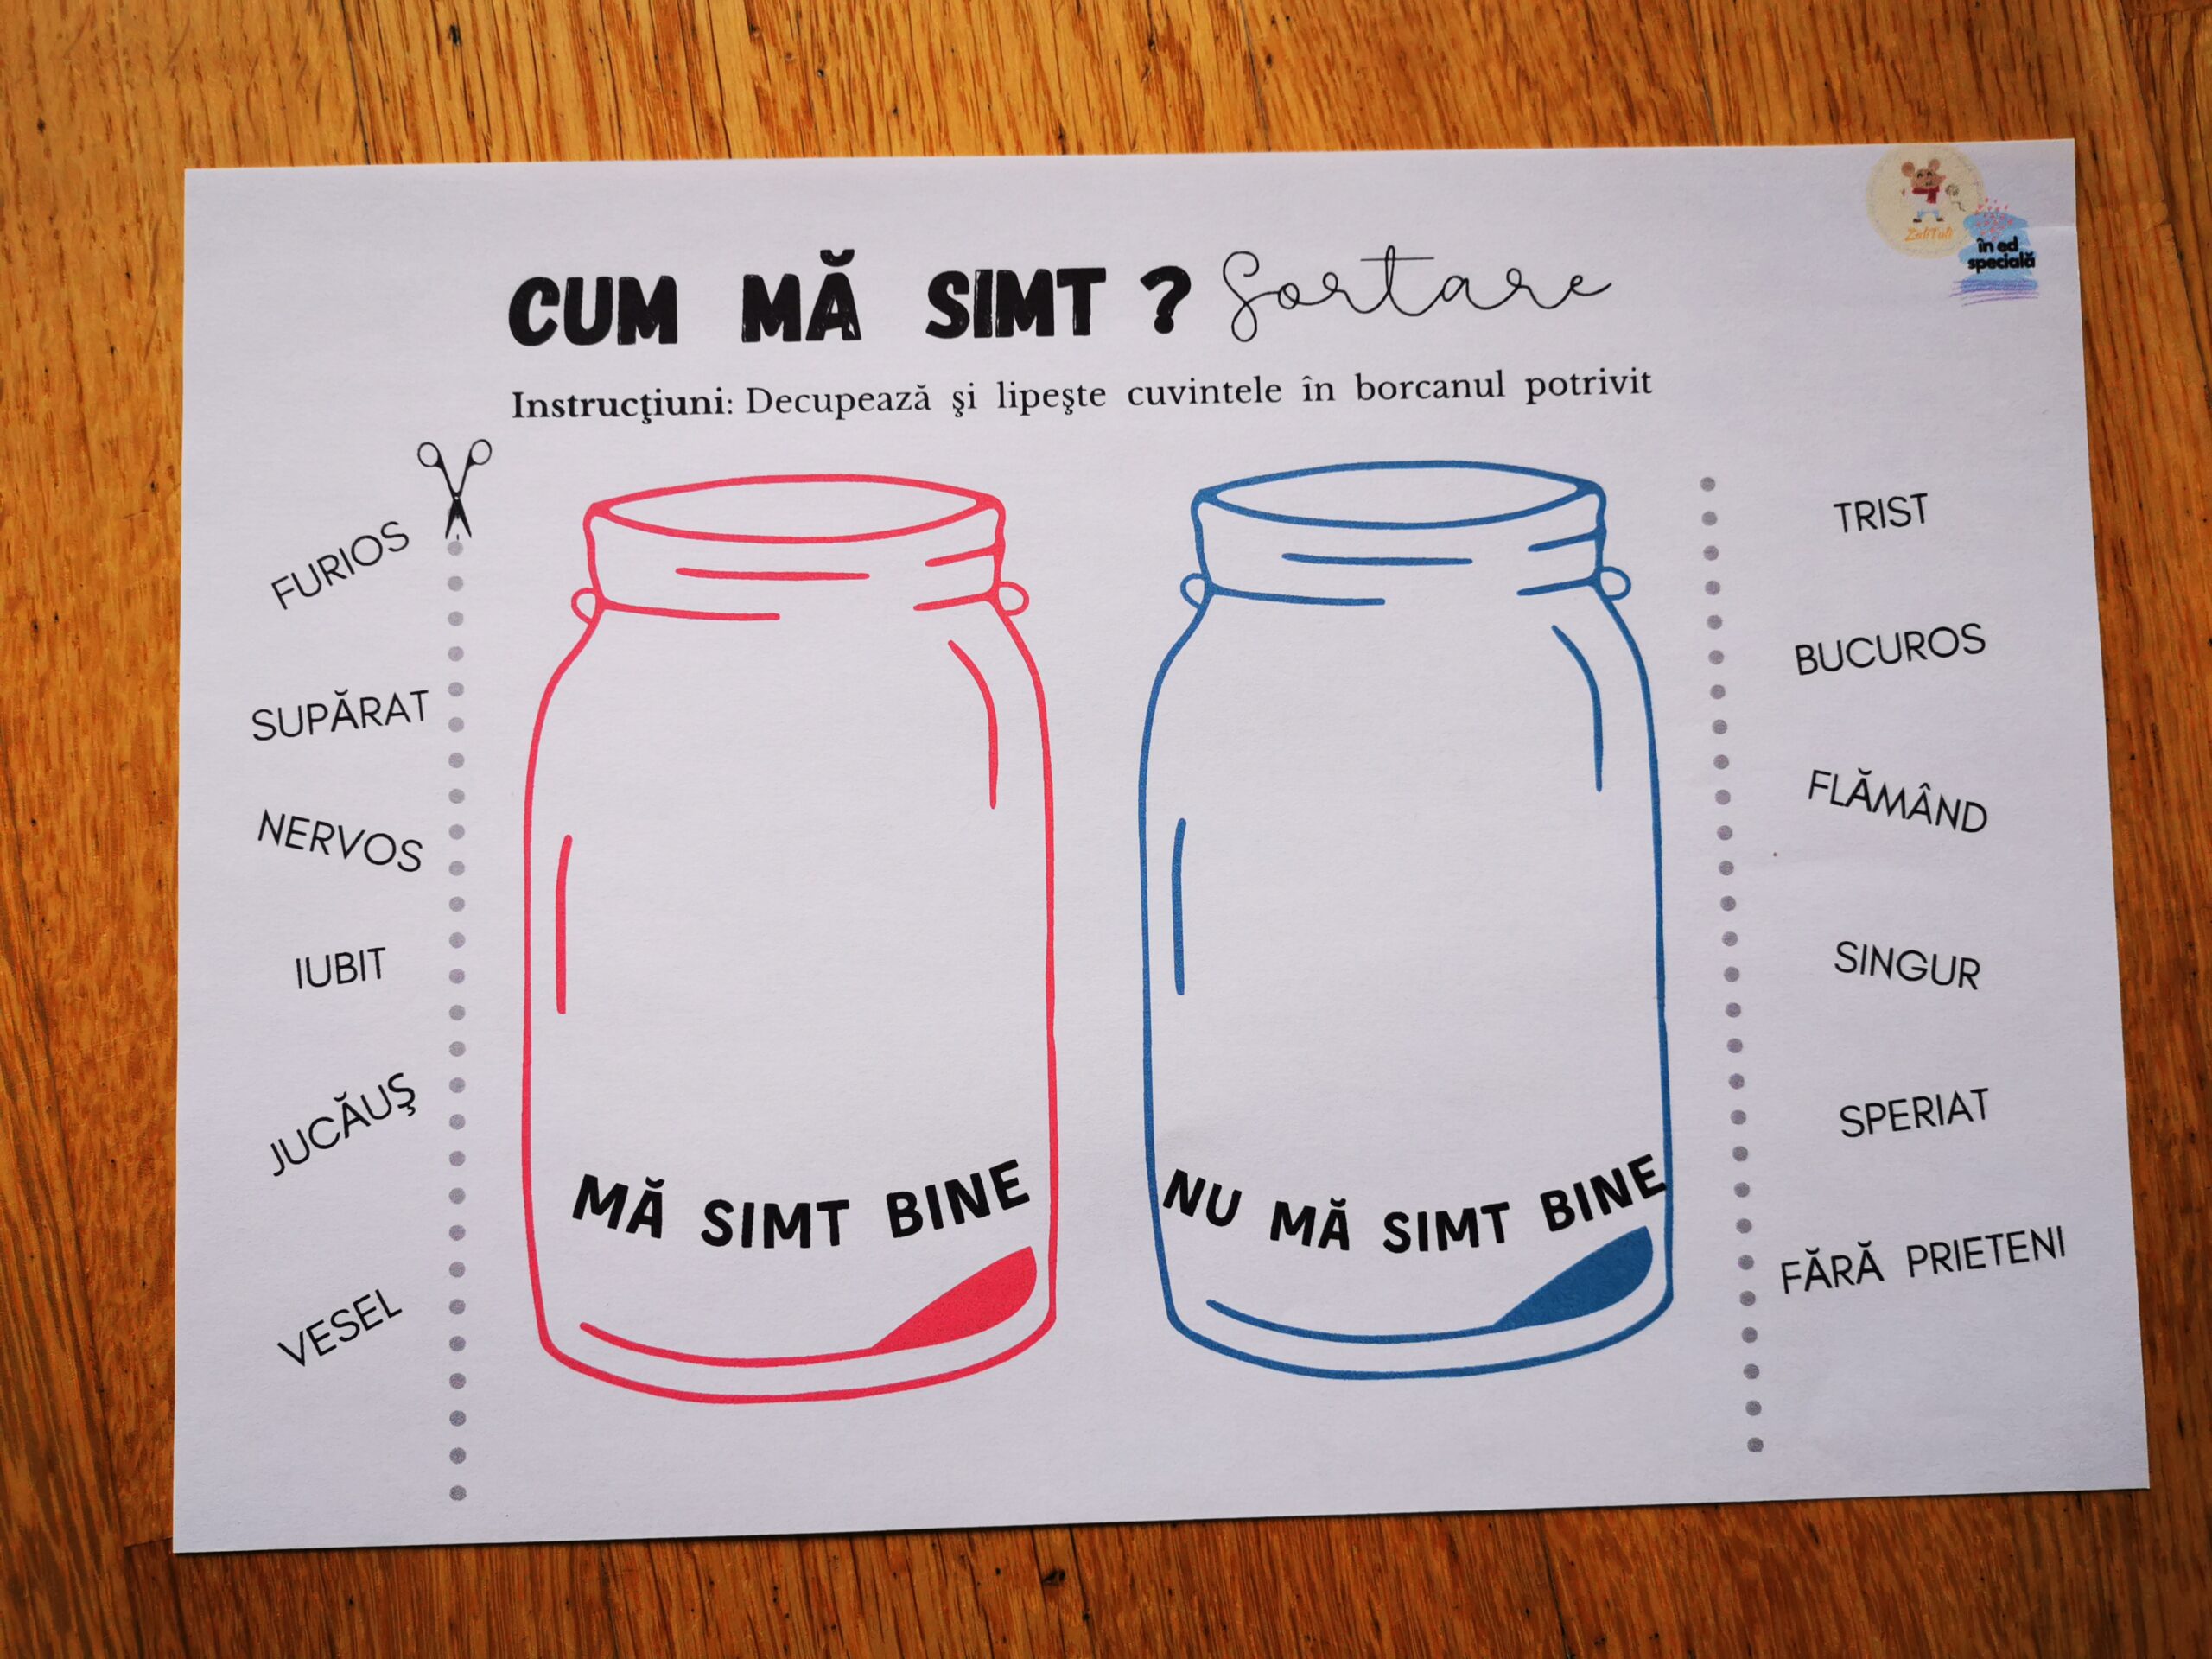 CUM MĂ SIMT ? Sortare
Instrucţiuni: Decupează şi lipeşte cuvintele în borcanul potrivit
FURIOS
SUPĂRAT
NERVOS
IUBIT
JUCĂUŞ
VESEL
MĂ SIMT BINE
NU MĂ SIMT BINE
TRIST
BUCUROS
FLĂMÂND
SINGUR
SPERIAT
FĂRĂ PRIETENI
în ed
specială